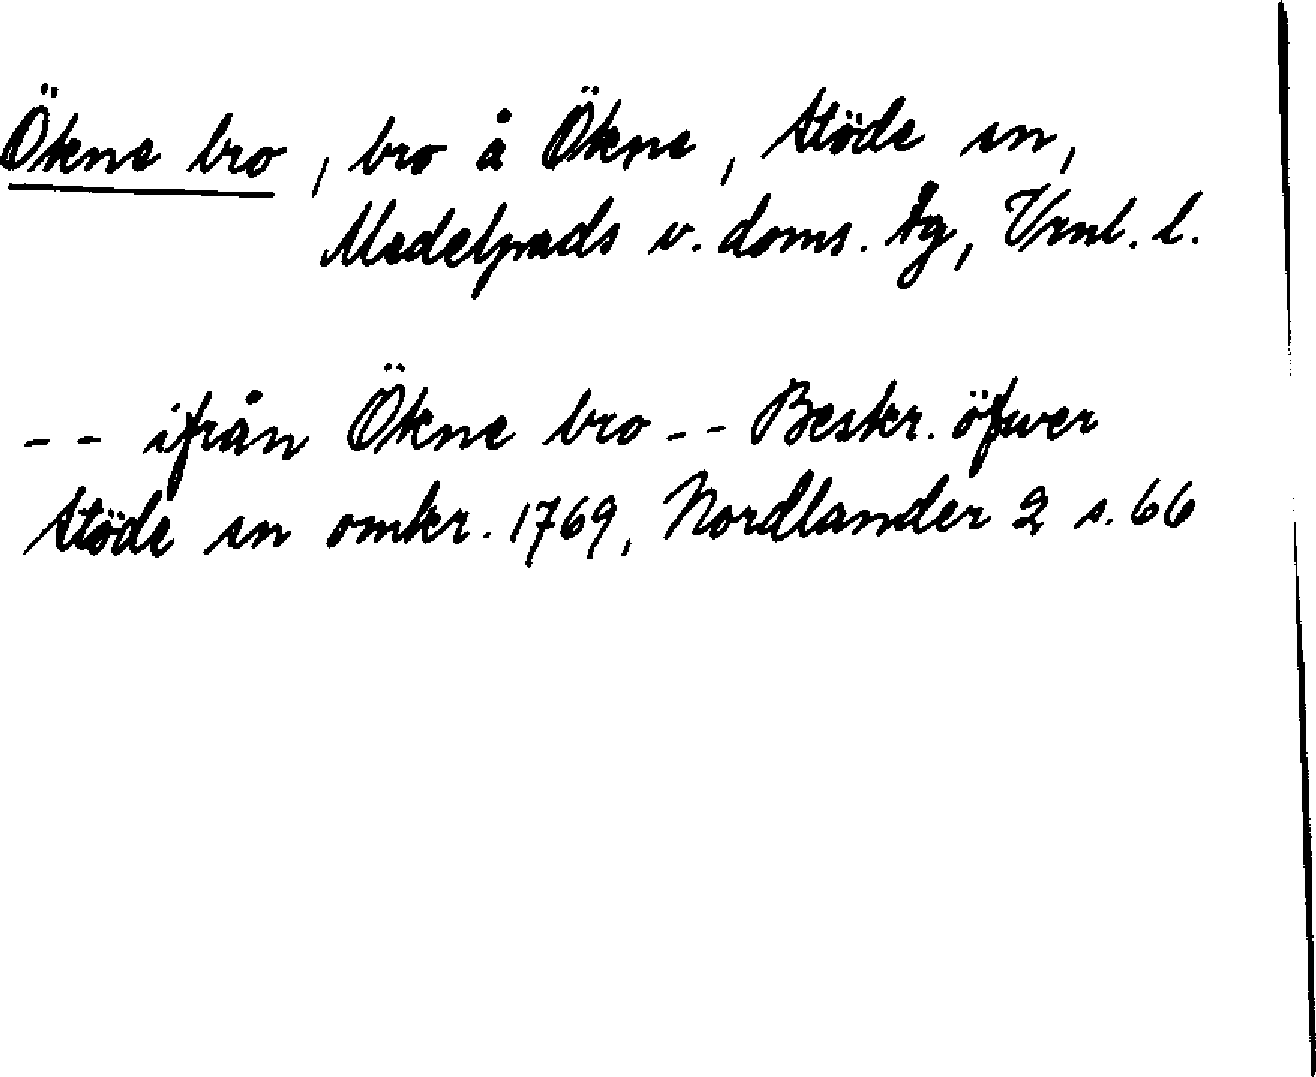 Ökne bro, bro å Ökne, Stöde sn,
Medelpads v. doms. tg, Vrnl. l.
-- ifrån Ökne bro -- Beskr. öfwer
Stöde sn omkr. 1769, Nordlander 2 s. 66